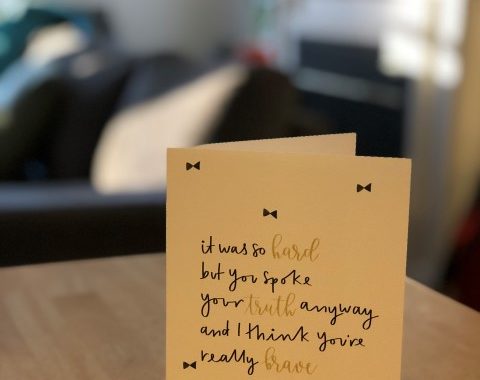 it was so hard
but you spoke
your truth anyway
and I think you're
really brave